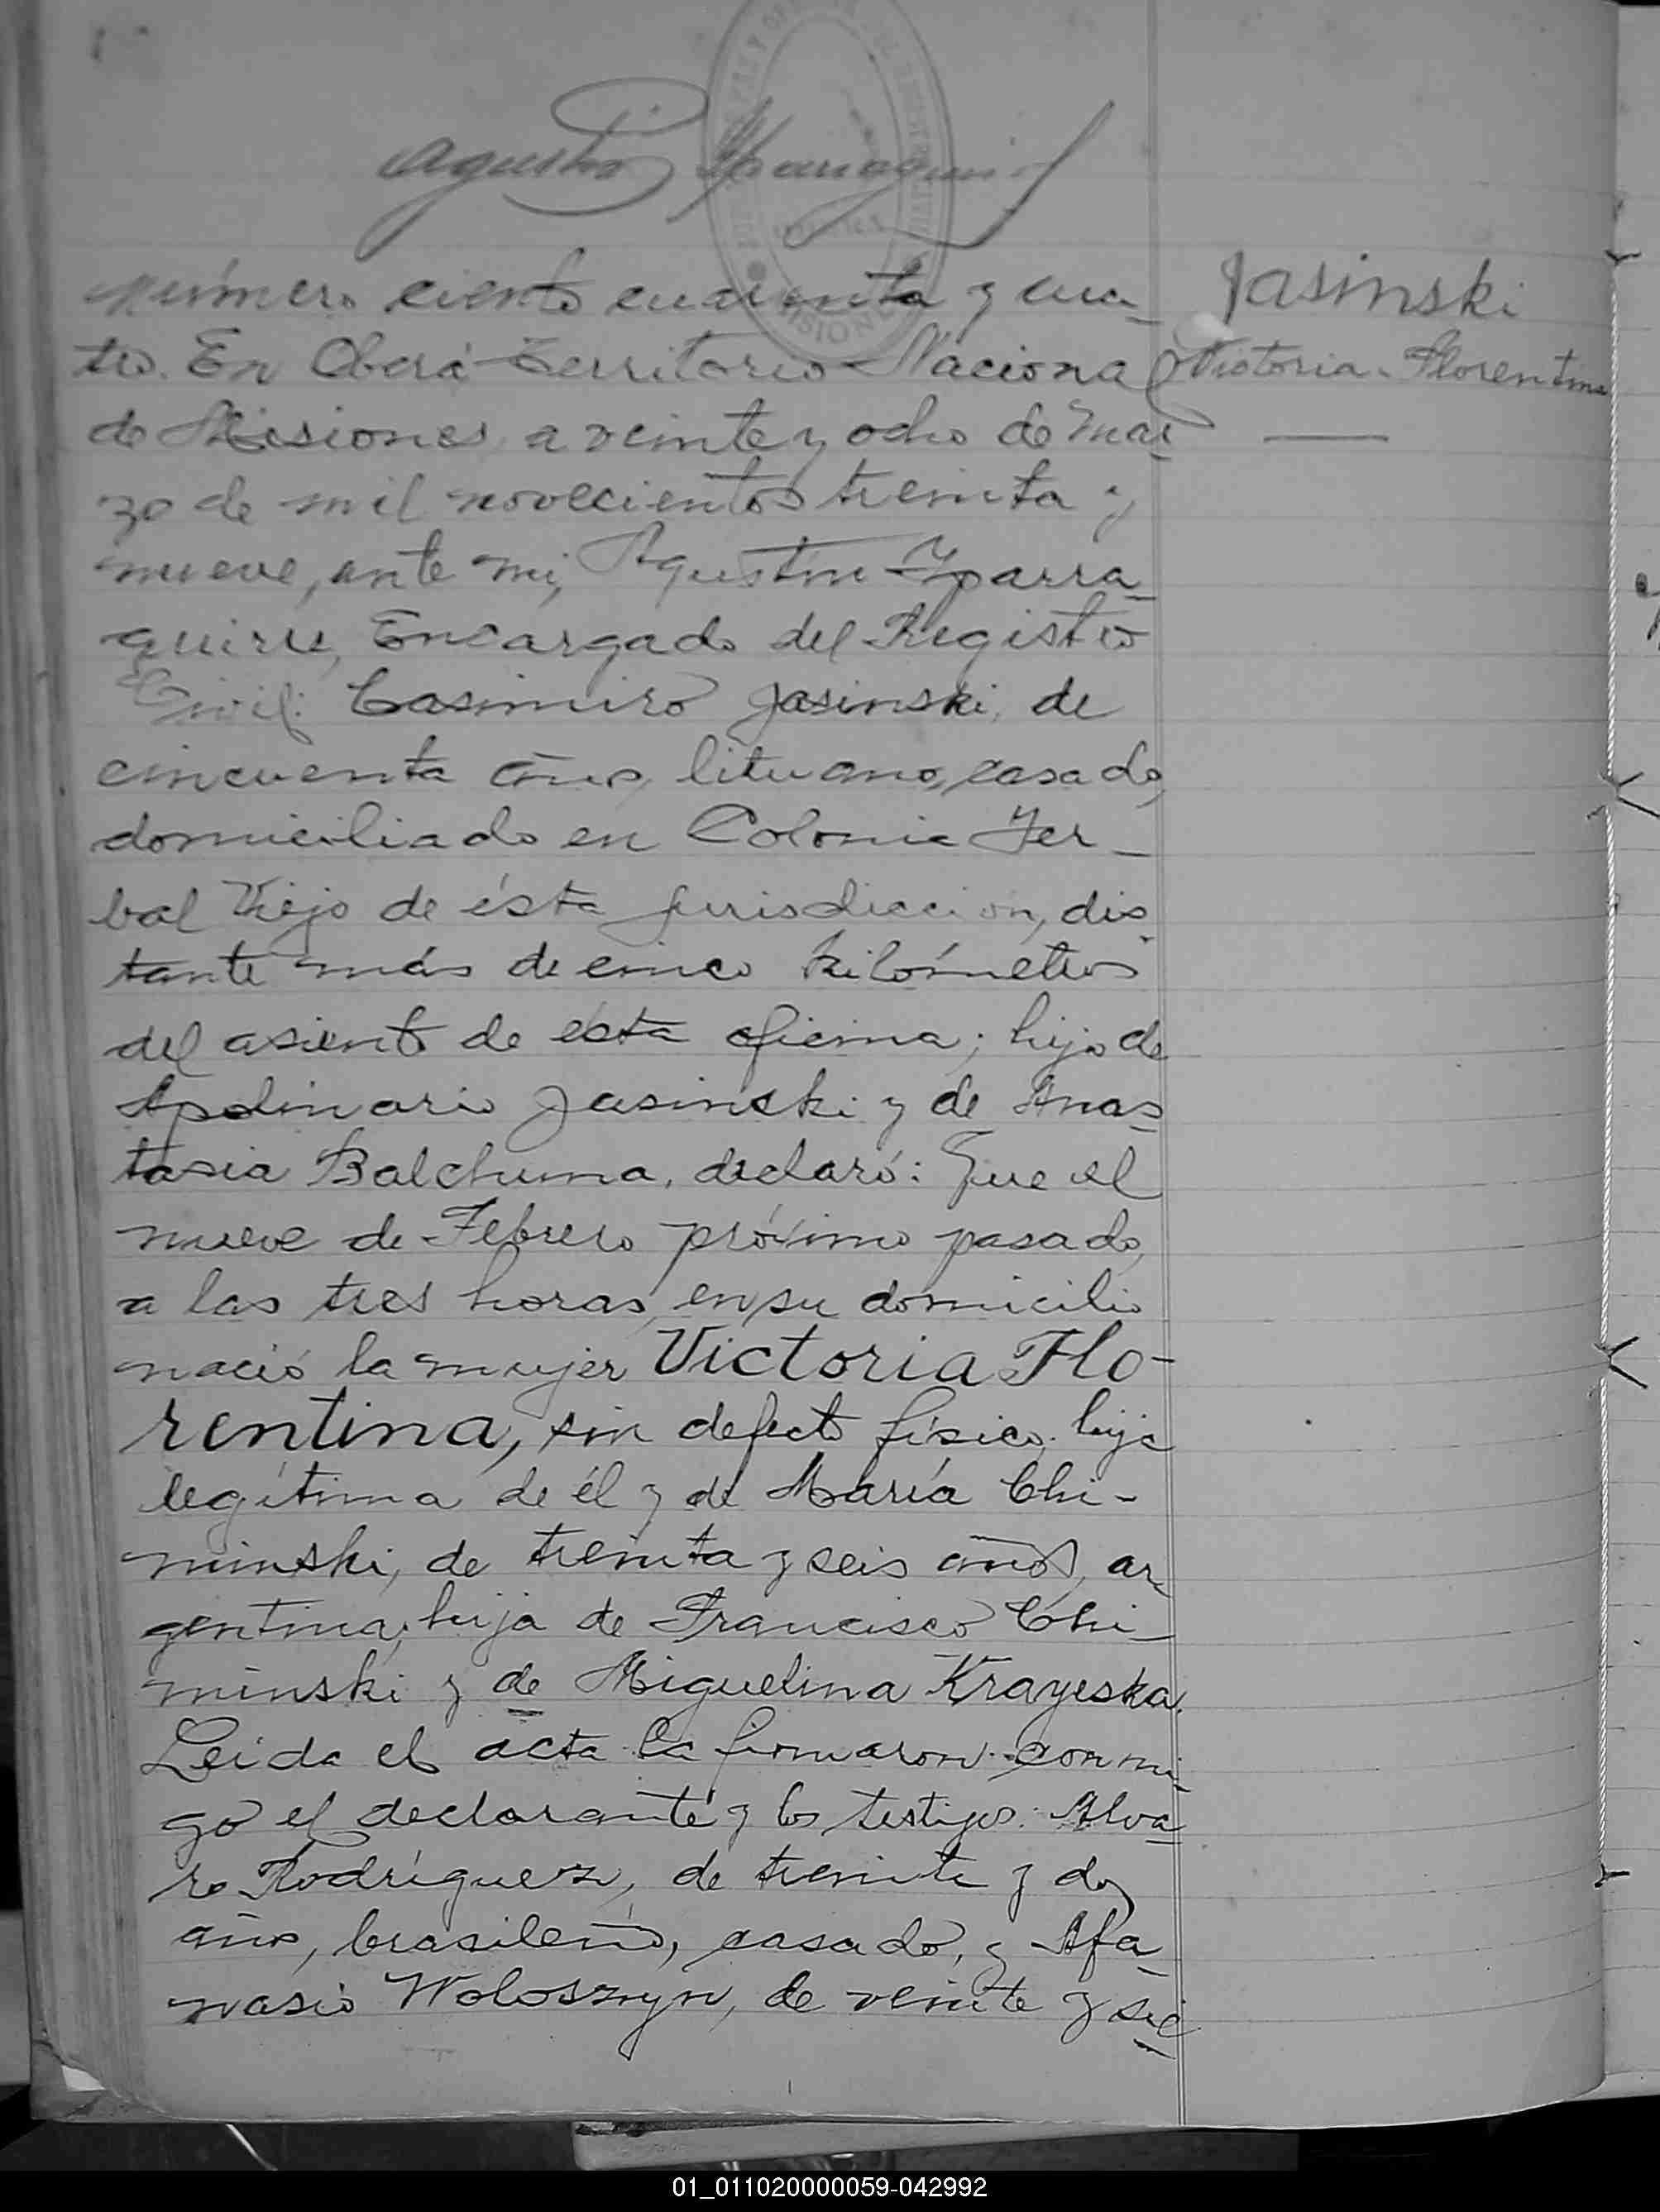 Agustin Yparraguirre
MISIONES
Número ciento cuarenta y cua-
tro. En Oberá Territorio Nacional
de Misiones, a veinte y ocho de Mar-
zo de mil novecientos treinta y
nueve, ante mí, Agustin Yparra-
guirre, Encargado del Registro
Civil: Casimiro Jasinski, de
cincuenta años, lituano, casado,
domiciliado en Colonia Yer-
bal Viejo de ésta jurisdiccion, dis-
tante más de cinco kilómetros
del asiento de ésta oficina; hijo de
Apolinario Jasinski y de Anas-
tasia Balchuna, declaró: Que el
nueve de Febrero próximo pasado,
a las tres horas, en su domicilio
nació la mujer Victoria Flo-
rentina, sin defecto físico, hija
legítima de él y de María Chi-
minski, de treinta y seis años, ar-
gentina, hija de Francisco Chi-
minski y de Miguelina Krayeska.
Leida el acta la firmaron conmi-
go el declarante y los testigos: Alva-
ro Rodríguez, de treinta y dos
años, brasileño, casado, y Afa-
nasio Woloszyn, de veinte y sie-
Jasinski
Victoria Florentina
01_011020000059-042992